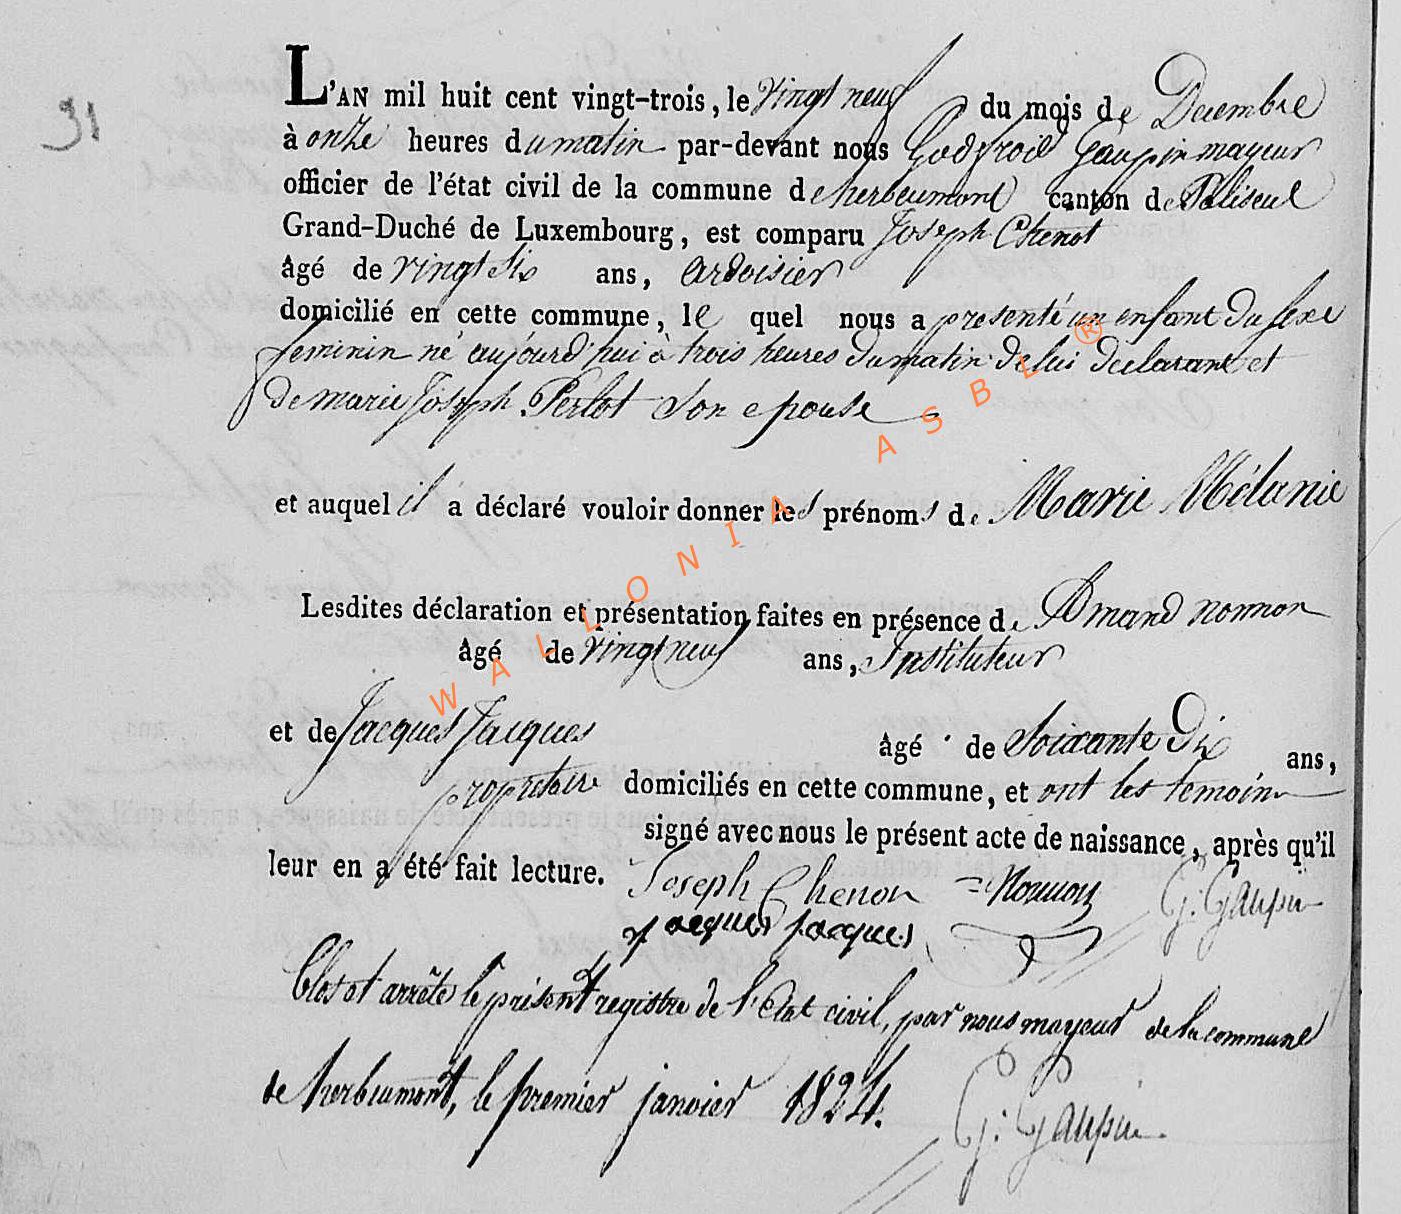 31
L'AN mil huit cent vingt-trois, le vingt neuf du mois de Decembre
à onze heures du matin par-devant nous Godfroid Gaupin mayeur
officier de l'état civil de la commune d'herbeumont canton de Paliseul
Grand-Duché de Luxembourg, est comparu Joseph Chenot
âgé de vingt six ans, ardoisier
domicilié en cette commune, le quel nous a presenté un enfant du sexe
feminin né aujourd'hui à trois heures du matin de lui declarant et
de marie Joseph Perlot son epouse
et auquel il a déclaré vouloir donner les prénoms de Marie Mélanie
Lesdites déclaration et présentation faites en présence de Amand nonnon
âgé de vingt neuf ans, Instituteur
et de Jacques Jacques âgé de Soixante Dix ans,
propriétaire domiciliés en cette commune, et ont les temoins
signé avec nous le présent acte de naissance, après qu'il
leur en a été fait lecture. Joseph Chenon Nonnon G: Gaupin
jacques jacques
Clos et arrêté le présent registre de l'état civil, par nous mayeur de la commune
de herbeumont, le premier janvier 1824.
G: Gaupin
WALLONIA ASBL ®